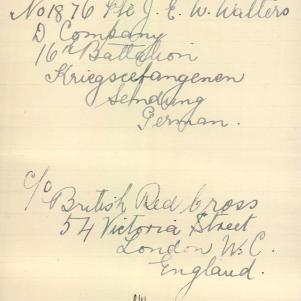 No 1876 Pte J. E. W. Walters
D Company
16th Battalion
Kriegscefangenen
Sendung
German.
c/o British Red Cross
54 Victoria Street
London W.C.
England.